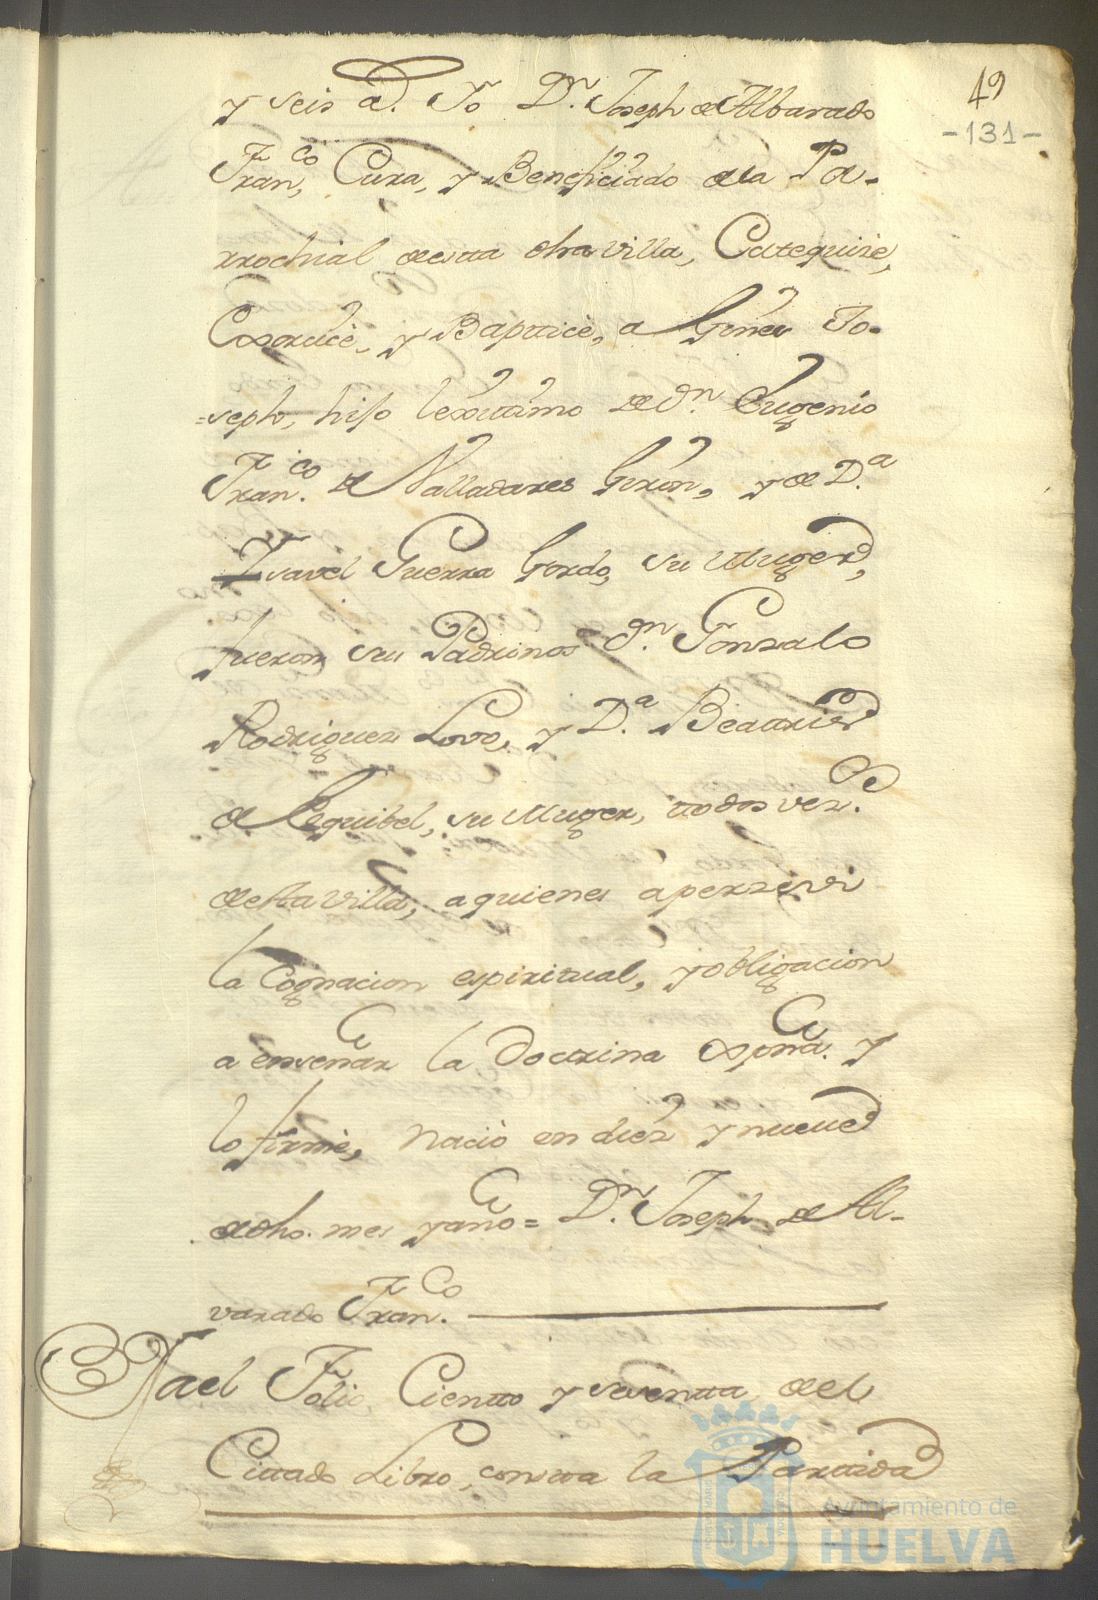 49
-131-
y seis a.s Yo D.n Joseph de Albarado
Fran.co Cura, y Beneficiado de la Pa-
rrochial de esta dha villa, Catequize,
Exorcicè, y Baptice, a Ginès Jo-
=seph, hijo lexitimo de d.n Eugenio
Fran.co de Valladares Giròn, y de D.a
Ysavel Guerra Gordo, su Muger,
fueron sus Padrinos d.n Gonzalo
Rodriguez Lovo, y D.a Beattriz
de Esquibel, su Muger, ttodos vez.s
desta villa, a quienes apercivi
la Cognacion espiritual, y obligacion
a enseñar la Doctrina Xpña. y
lo firmè, naciò en diez y nueve
de dho. mes y año = D.n Joseph de Al-
varado Fran.co
Al Folio Ciento y sesentta del
Cittado Libro, constta la Parttida
Ayuntamiento de
HUELVA